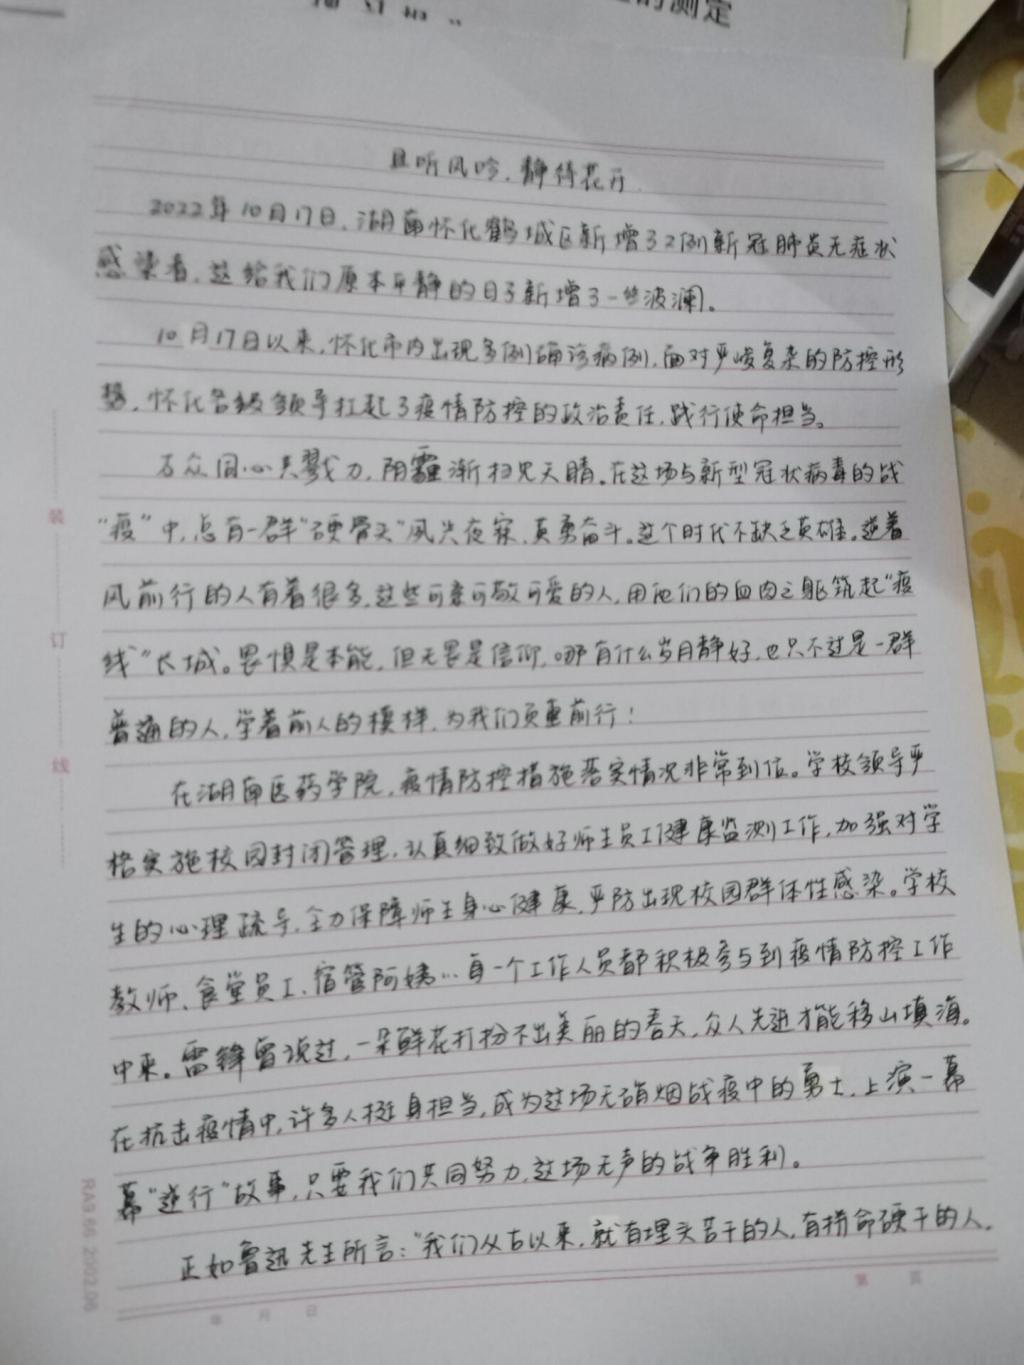 的测定
且听风吟，静待花开
2022年10月17日，湖南怀化鹤城区新增32例新冠肺炎无症状
感染者，这给我们原本平静的日子新增了一些波澜。
10月17日以来，怀化市内出现多例确诊病例，面对严峻复杂的防控形
势，怀化各级领导扛起了疫情防控的政治责任，践行使命担当。
万众同心共戮力，阴霾渐扫见天晴。在这场与新型冠状病毒的战
“疫”中，总有一群“硬骨头”夙兴夜寐，真勇奋斗。这个时代不缺乏英雄。逆着
风前行的人有着很多，这些可亲可敬可爱的人，用他们的血肉之躯筑起“疫
线”长城。畏惧是本能，但无畏是信仰，哪有什么岁月静好，也只不过是一群
普通的人，学着前人的模样，为我们负重前行！
在湖南医药学院，疫情防控措施落实情况非常到位。学校领导严
格实施校园封闭管理，认真细致做好师生员工健康监测工作，加强对学
生的心理疏导，全力保障师生身心健康，严防出现校园群体性感染。学校
教师、食堂员工、宿管阿姨…每一个工作人员都积极参与到疫情防控工作
中来。雷锋曾说过，一朵鲜花打扮不出美丽的春天，众人先进才能移山填海。
在抗击疫情中，许多人挺身担当，成为这场无硝烟战疫中的勇士，上演一幕
幕“逆行”故事，只要我们共同努力，这场无声的战争胜利。
正如鲁迅先生所言：“我们从古以来，就有埋头苦干的人，有拼命硬干的人，
装
订
线
RA9.66 2002.06
年 月 日
第 页